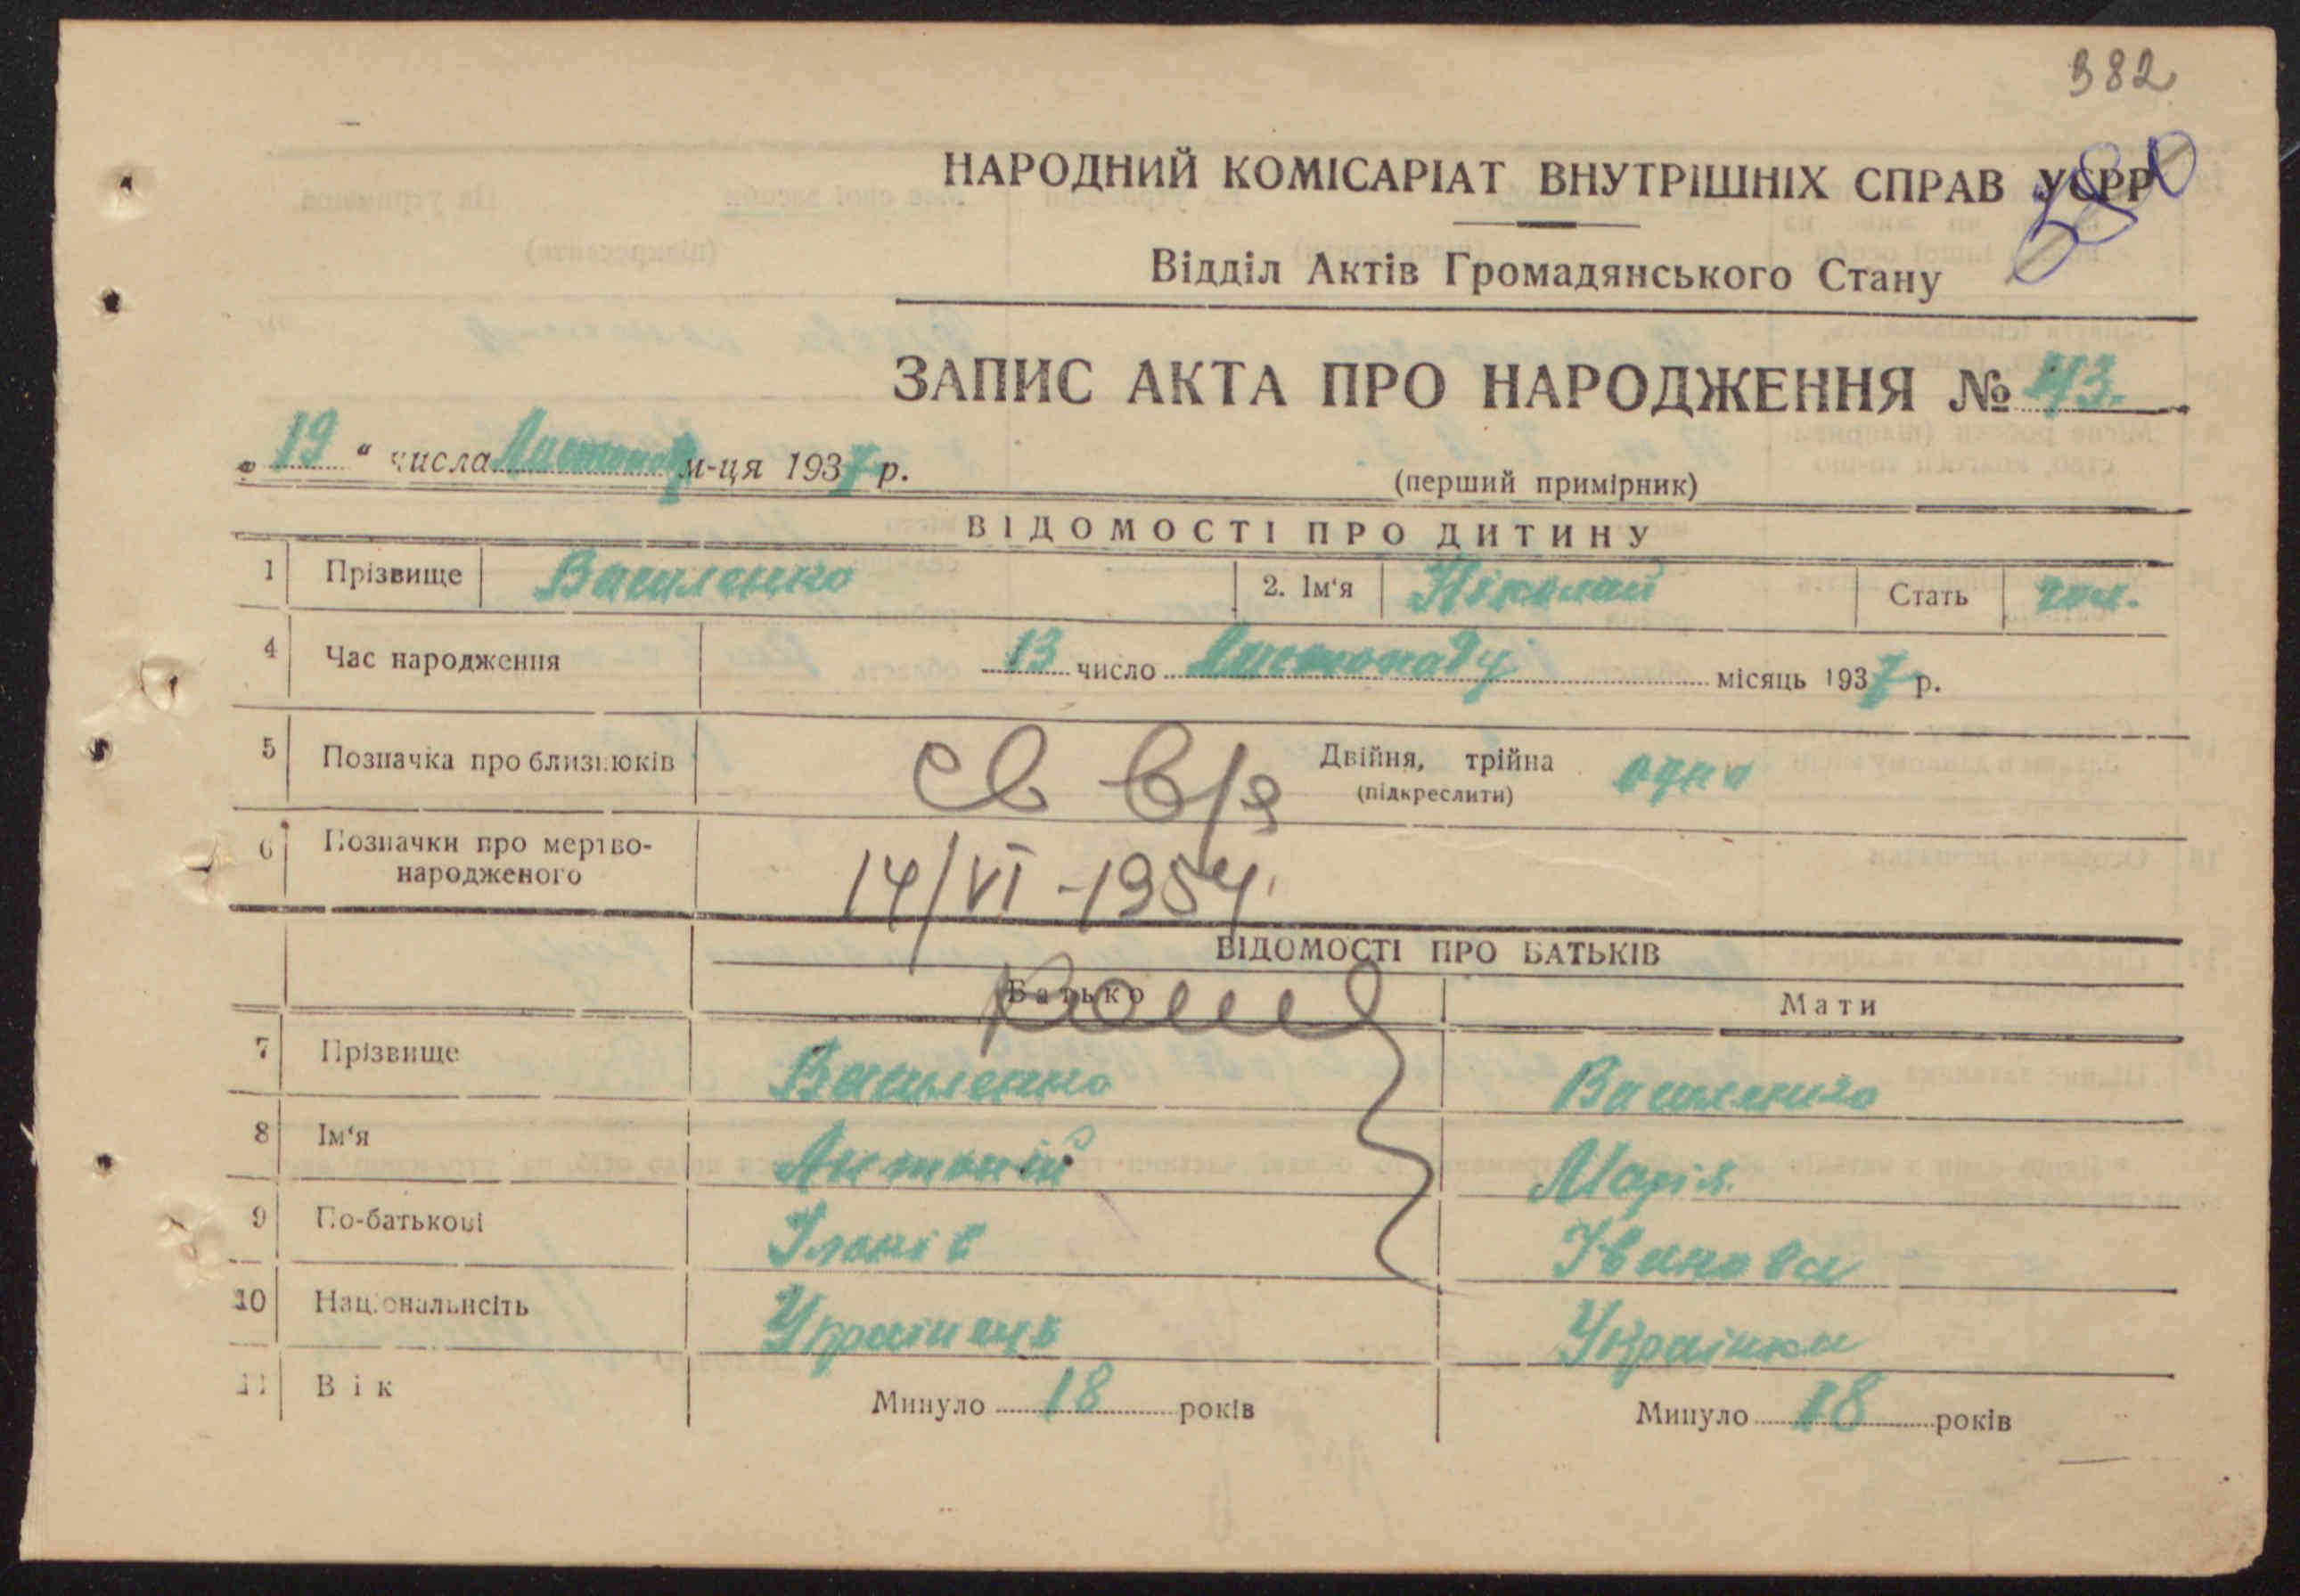 382
НАРОДНИЙ КОМІСАРІАТ ВНУТРІШНІХ СПРАВ УСРР
Відділ Актів Громадянського Стану
ЗАПИС АКТА ПРО НАРОДЖЕННЯ № 43.
„ 19 “ числа Листопад м-ця 1937 р.
(перший примірник)
ВІДОМОСТІ ПРО ДИТИНУ
1 Прізвище Василенко 2. Ім‘я Ніколай Стать чол.
4 Час народження 13 число Листопаду місяць 1937 р.
5 Позначка про близнюків св в/я Двійня, трійна одно
(підкреслити)
6 Позначки про мертво-
народженого 14/VI -1954
ВІДОМОСТІ ПРО БАТЬКІВ
Батько Мати
7 Прізвище Василенко Василенко
8 Ім‘я Антоній Марія
9 По-батькові Ілонів Іванова
10 Національнсіть Українець Українка
11 Вік Минуло 18 років Минуло 18 років